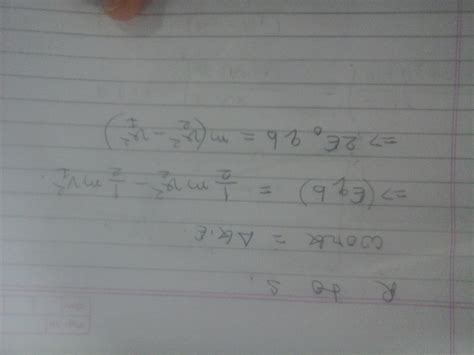 R to S.
work = Δk.E.
=> (Eqb) = 1/2 mv₂² - 1/2 mv₁².
=> 2E₀qb = m(v₂² - v₁²)